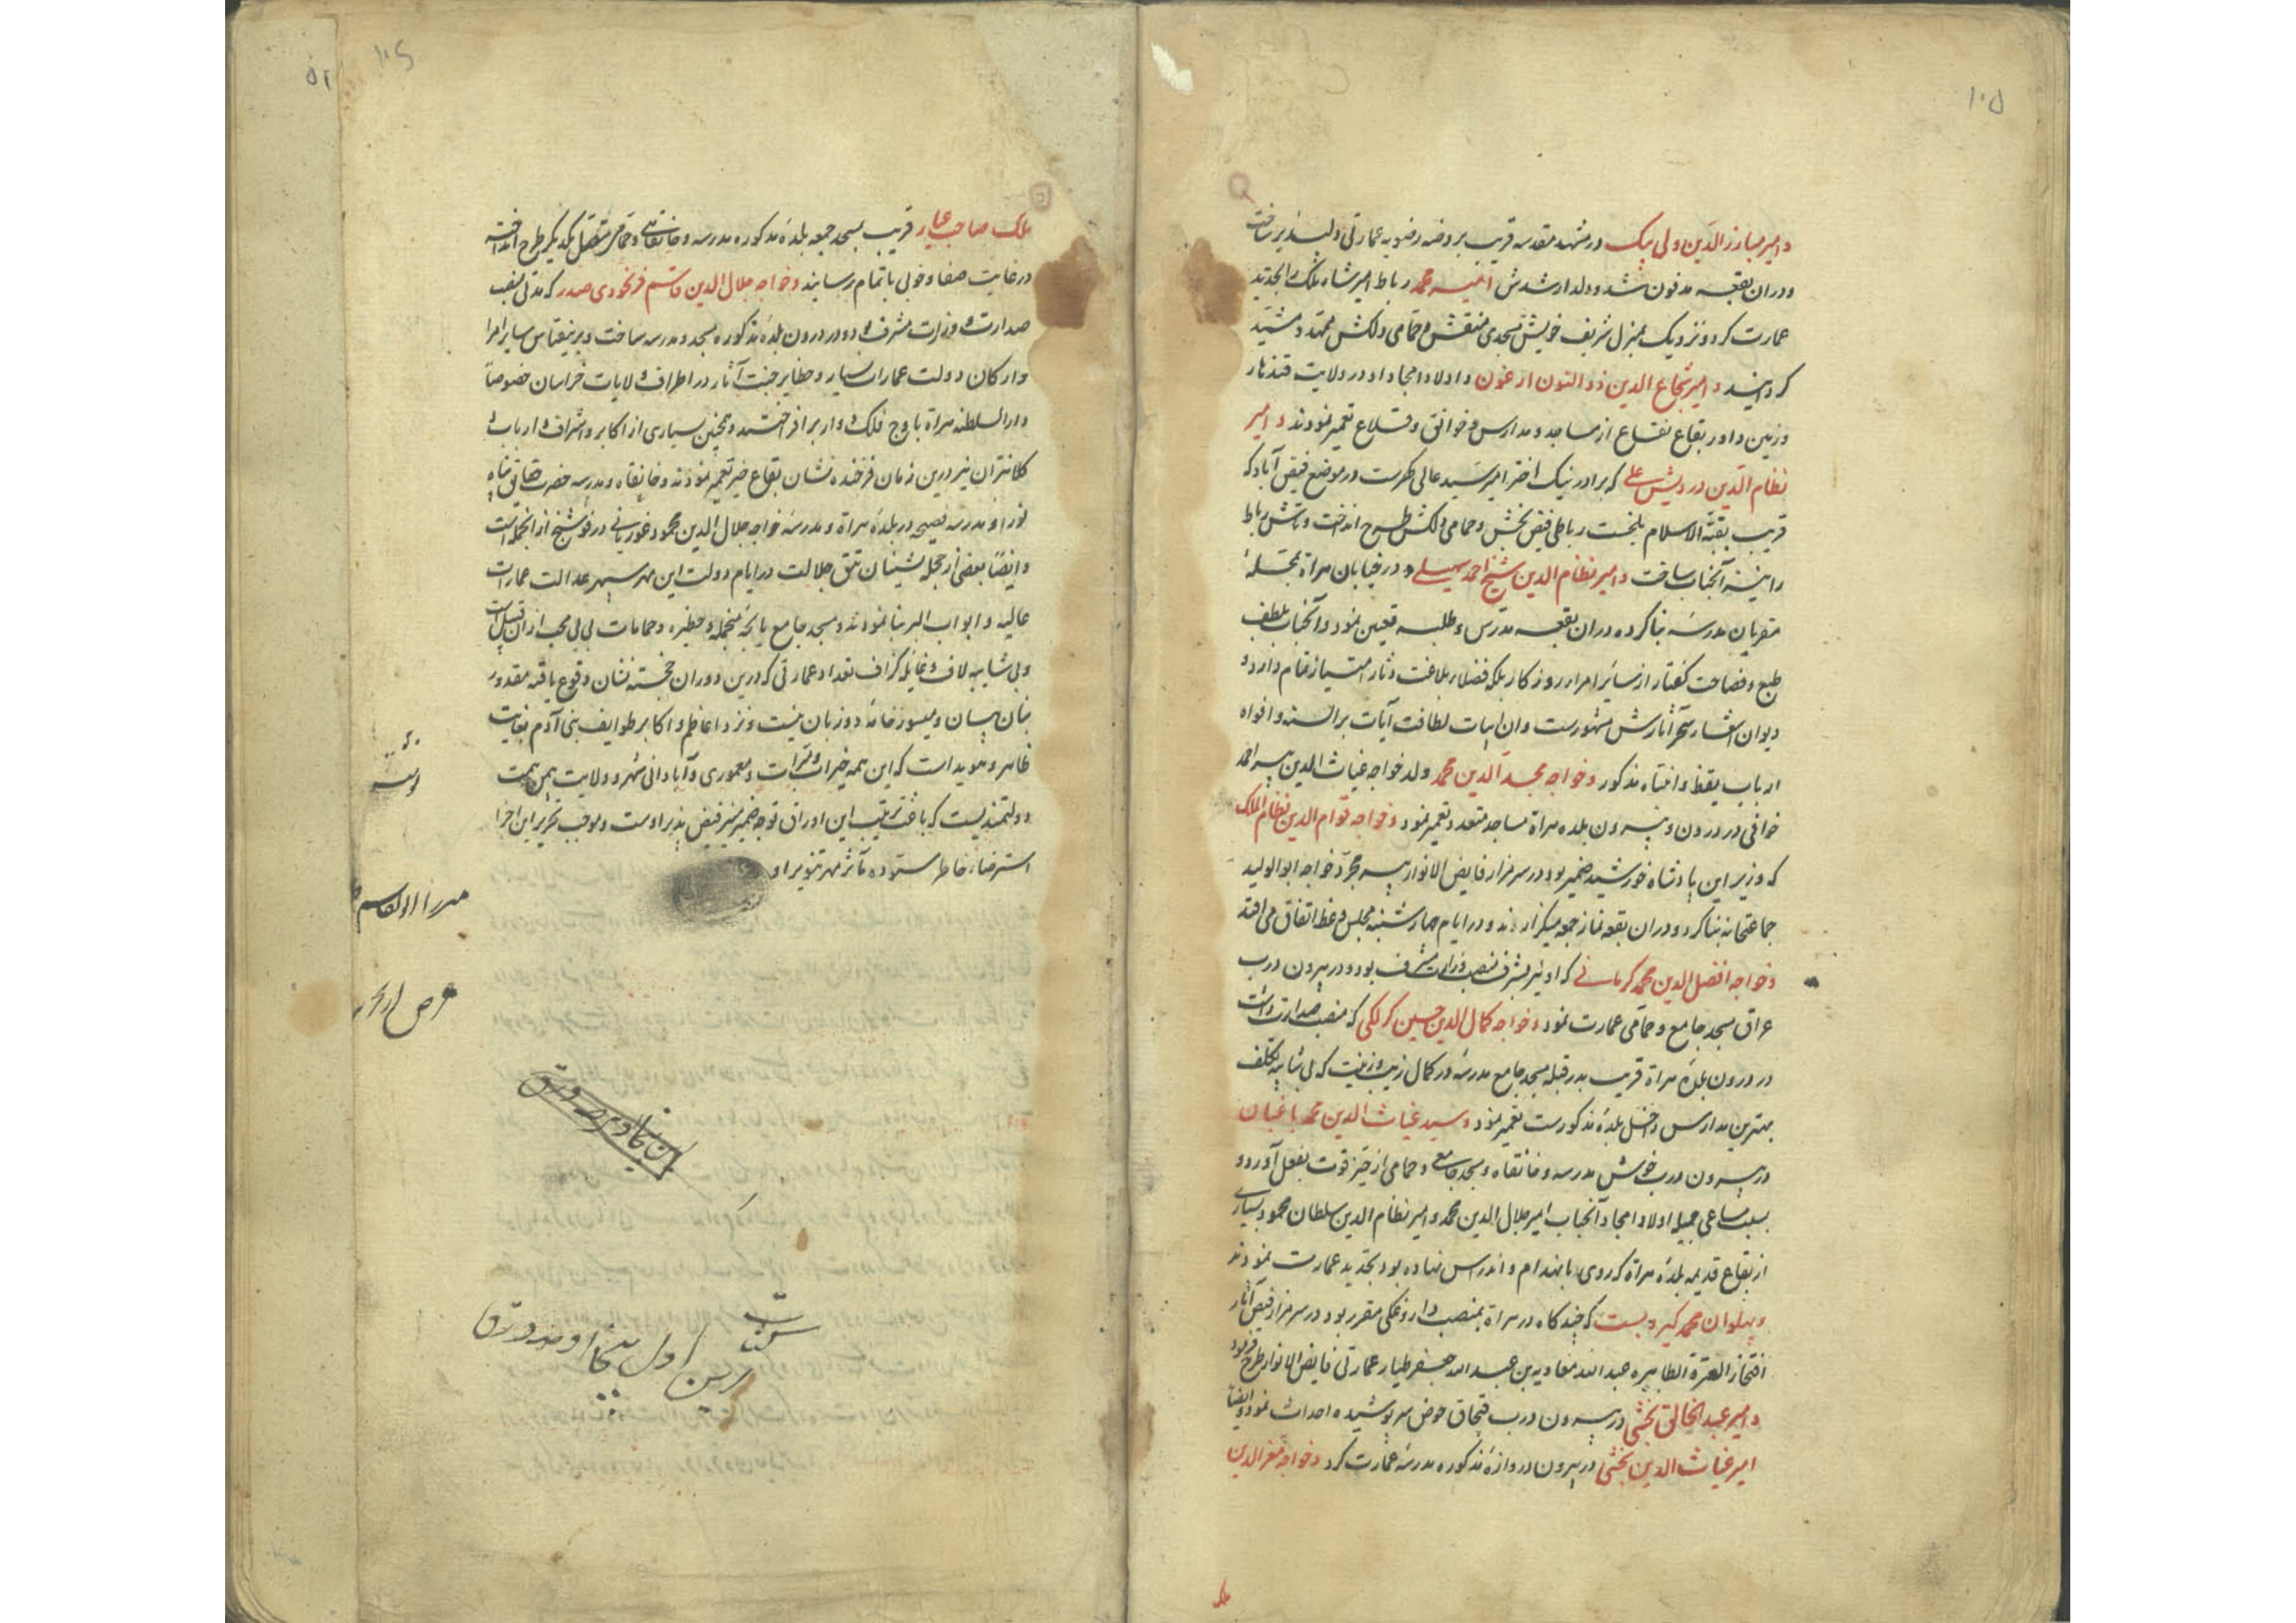 ۱۰۵
و امیر مبارز الدین ولی بیک در مشهد مقدسه قریب بروضه رضویه عمارتی دلپذیر ساخت
و در ان بقعه مدفون شد و ولد ارشدش محمد رباط امیر شاه ملک را بتجدید
عمارت کرد و نزدیک بمنزل شریف خویش مسجدی منقش و حمامی دلکش ممهد و مشید
کردانید و امیر شجاع الدین ذو النون ارغون و اولاد امجاد او در ولایت قندهار
و زمین داور بقاع نفاع از مساجد و مدارس و خوانق و قلاع تعمیر نمودند و امیر
نظام الدین درویش علی که برادر نیک اختر امیر سید عالی کهرست در موضع فیض آباد که
قریب بقبة الاسلام بلخست رباطی فیض بخش و حمامی دلکش طرح انداخت و رباط
را نیز آنجناب ساخت و امیر نظام الدین شیخ احمد سهیلی در خیابان هراة بمحله
مقریان مدرسه بنا کرده در ان بقعه مدرس و طلبه تعیین نمود و آنجناب بلطف
طبع و فصاحت کفتار از سائر امراء روزکار بلکه فضلاء بلاغت دثار امتیاز تمام دارد و
دیوان اشعار سحر آثارش مشهورست و ان ابیات لطافت آیات بر السنه و افواه
ارباب یقظ و انتباه مذکور و خواجه مجد الدین محمد ولد خواجه غیاث الدین پیر احمد
خوافی در درون و بیرون بلده هراة مساجد متعدد تعمیر نمود و خواجه قوام الدین نظام الملک
که وزیر این پادشاه خورشید ضمیر بود در سر مزار فایض الانوار پیر مجرد خواجه ابو الولید
جماعتخانه بنا کرد و در ان بقعه نماز جمعه میکزارند و در ایام چهارشنبه مجلس وعظ اتفاق می افتد
و خواجه افضل الدین محمد کرمانی که او نیز بشرف منصب وزارت مشرف بود در بیرون درب
عراق مسجد جامع و حمامی عمارت نمود و خواجه کمال الدین حسین کرنکی که منصب صدارت داشت
در درون بلده هراة قریب بدر قبله مسجد جامع مدرسه در کمال زیب و زینت که بی شایبه تکلف
بهترین مدارس داخل بلده مذکورست تعمیر نمود و سید غیاث الدین محمد باغبان
در بیرون درب خوش مدرسه و خانقاه و مسجد جامع و حمامی از حیز قوت بفعل آورد و
بسبب مساعی جمیله اولاد امجاد آنجناب امیر جلال الدین محمد و امیر نظام الدین سلطان محمود بسیاری
از بقاع قدیمه بلده هراة که روی بانهدام و اندراس نهاده بود بتجدید عمارت نمودند
و پهلوان محمد که چند کاه در هراة بمنصب داروغکی مقرر بود در سر مزار فیض آثار
افتخار العترة الطاهره عبد الله معاویه بن عبد الله جعفر طیار عمارتی فایض الانوار طرح فرمود
و امیر عبد الخالق بخشی در بیرون درب قبچاق حوض سرپوشیده احداث نمود و ایضا
امیر غیاث الدین بخشی در بیرون دروازه مذکوره مدرسه عمارت کرد و خواجه معز الدین
ملک
۵۲
۱۰۶
ملک صاحب عیار قریب بمسجد جمعه بلده مذکوره مدرسه و خانقاهی و حمامی متصل بیکدیکر طرح انداخته
در غایت صفا و خوبی باتمام رسانید و خواجه جلال الدین قاسم فرنخودی صدر که مدتی بمنصب
صدارت و وزارت مشرف بود در درون بلده مذکوره مسجد و مدرسه ساخت و برینقیاس سایر امرا
و ارکان دولت عمارات بسیار و حظایر جنت آثار در اطراف ولایات خراسان خصوصاً
دار السلطنه هراة باوج فلک دوار برافراختند و همچنین بسیاری از اکابر و اشراف و ارباب و
کلانتران نیز درین زمان فرخنده نشان بقاع خیر تعمیر نمودند و خانقاه و مدرسه حضرت حقایق پناه
نورا و مدرسه فصیحیه در بلده هراة و مدرسه خواجه جلال الدین محمود غوریانی در فوشنج از انجمله است
و ایضاً بعضی از حجله نشینان تتق جلالت در ایام دولت این مهر سپهر عدالت عمارات
عالیه و ابواب البر بنا نمودند و مسجد جامع و حظیره و حمامات بی بی محب از ان قبیل است
و بی شایبه لاف و غایله کزاف تعداد عمارتی که درین دوران خجسته نشان وقوع یافته مقدور
بنان بیان و میسور خامه دو زبان نیست و نزد اعاظم و اکابر طوایف بنی آدم بغایت
ظاهر و هویداست که این همه خیرات و مبرات و معموری و آبادانی شهر و ولایت بیمن همت
دولتمندیست که باعث ترتیب این اوراق توجه ضمیر منیر فیض پذیر اوست و موجب تحریر این اجزا
استرضاء خاطر ستوده مآثر مهر تنویر او
میرزا ابوالقاسم
پنجاه و سه ورق